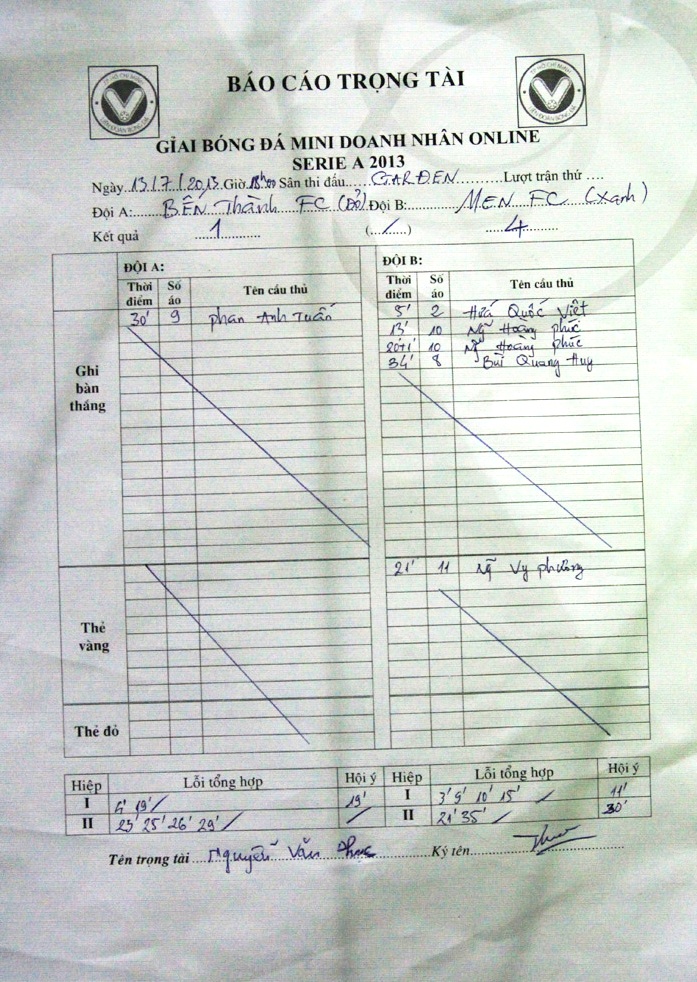 BÁO CÁO TRỌNG TÀI
GIẢI BÓNG ĐÁ MINI DOANH NHÂN ONLINE
SERIE A 2013
Ngày 13/7/2013 Giờ 18h00 Sân thi đấu GARDEN Lượt trận thứ ....
Đội A: BẾN Thành FC (Đỏ) Đội B: MEN FC (Xanh)
Kết quả 1 (..../....) 4
ĐỘI A: ĐỘI B:
Thời điểm Số áo Tên cầu thủ Thời điểm Số áo Tên cầu thủ
Ghi bàn thắng
30' 9 phan Anh Tuấn 5' 2 Hứa Quốc Việt
13' 10 Ng~ Hoàng phúc
20+1' 10 Ng~ Hoàng phúc
34' 8 Bùi Quang Huy
Thẻ vàng
21' 11 Ng~ Vy phương
Thẻ đỏ
Hiệp Lỗi tổng hợp Hội ý Hiệp Lỗi tổng hợp Hội ý
I 19' 19' I 3' 9' 10' 15' 11'
II 23' 25' 26' 29' II 21' 35' 30'
Tên trọng tài Nguyễn Văn Ký tên